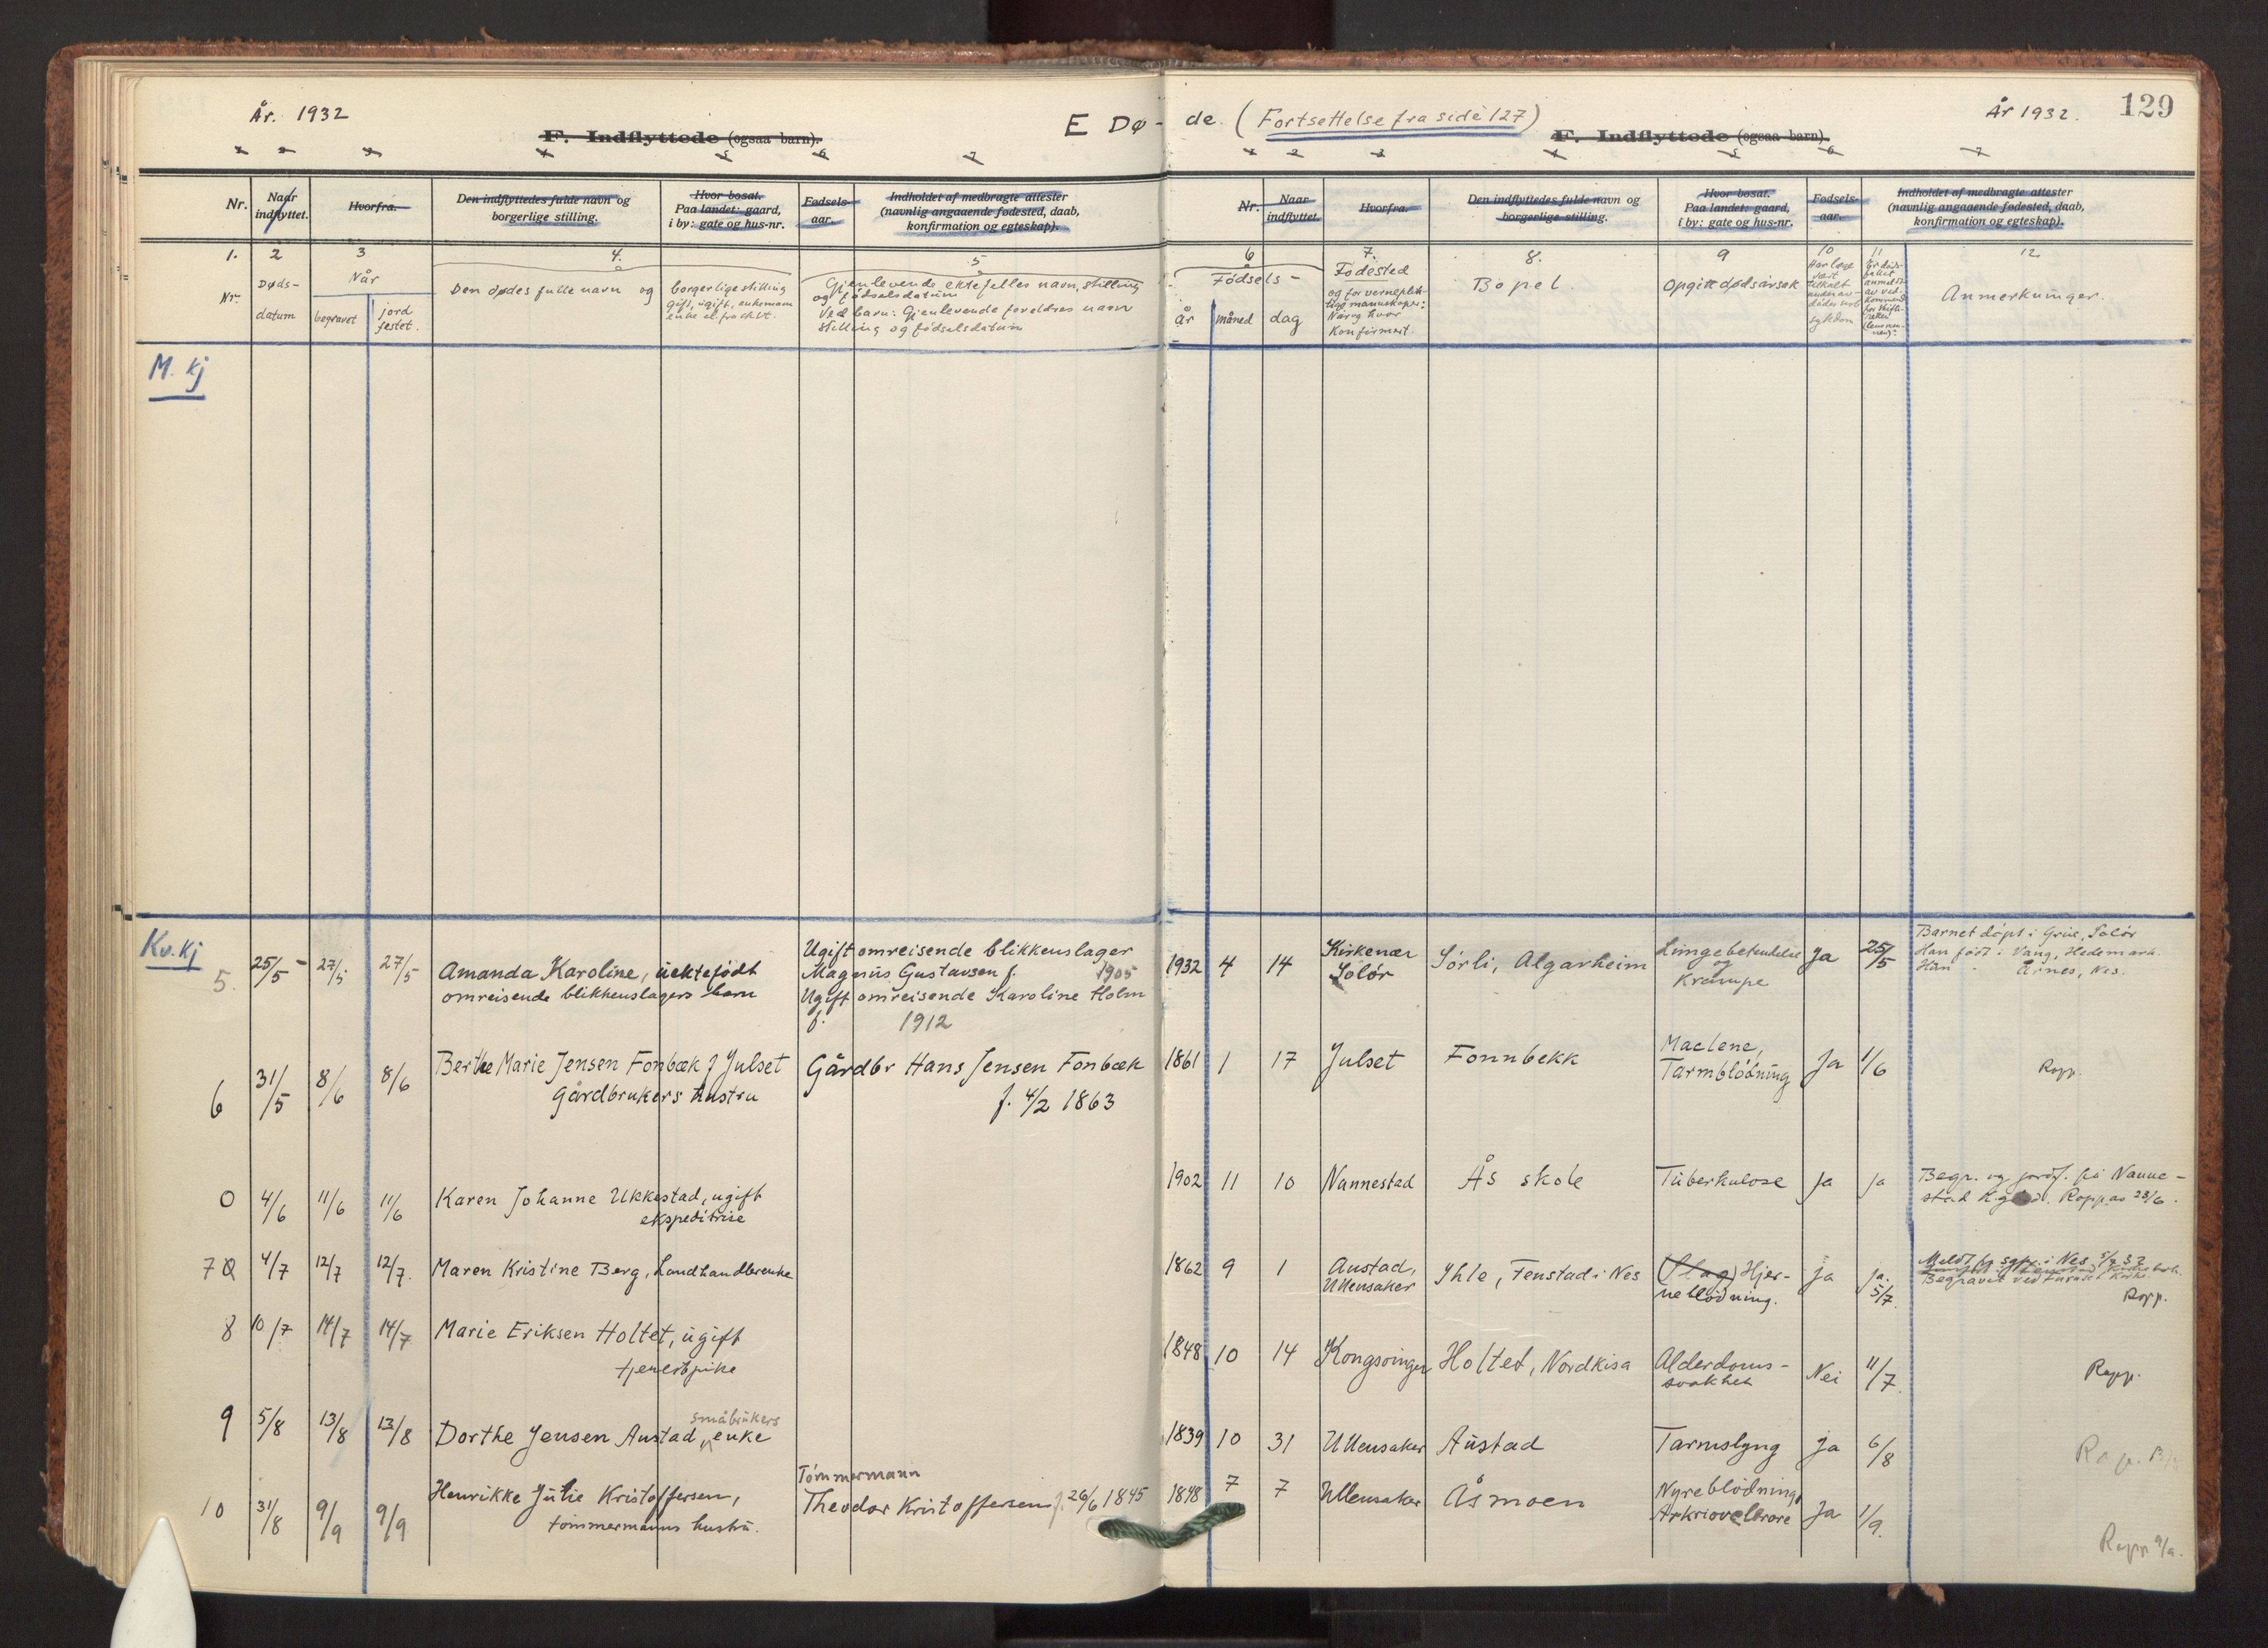 År. 1932
E Dø-
de. (Fortsettelse fra side 127)
År 1932.
129
F. Indflyttede (ogsaa barn).
F. Indflyttede (ogsaa barn).
1 2 3 4 5 6 7
1 2 3 4 5 6 7
Nr.
Naar indflyttet.
Hvorfra.
Den indflyttedes fulde navn og borgerlige stilling.
Hvor bosat. Paa landet: gaard, i by: gate og hus-nr.
Fødsels-aar.
Indholdet af medbragte attester
(navnlig angaaende fødested, daab,
konfirmation og egteskap).
Nr.
Naar indflyttet.
Hvorfra.
Den indflyttedes fulde navn og borgerlige stilling.
Hvor bosat. Paa landet: gaard, i by: gate og hus-nr.
Fødsels-aar.
Indholdet af medbragte attester
(navnlig angaaende fødested, daab,
konfirmation og egteskap).
1. 2 3 4. 5
6 7. 8. 9 10 11 12
Nr.
Døds-
datum
Når
begravet
jord
festet.
Den dødes fulle navn og
borgerlige stilling
gift, ugift, enkemann
enke el. fraskilt.
Gjenlevende ektefelles navn, stilling
og fødselsdatum
Ved barn: Gjenlevende foreldres navn
stilling og fødselsdatum
Fødsels-
år måned dag
Fødested
og for verneplik-
tige mannskaper:
Når og hvor
konfirmert.
Bopel.
Opgitt dødsårsak
Anmerkninger.
M. kj
Kv. kj
5. 25/5 - 27/5 27/5
Amanda Karoline, uektefødt
omreisende blikkenslagers barn
Ugift omreisende blikkenslager
Magnus Gustavsen f. 1905
Ugift omreisende Karoline Holm
f. 1912
1932 4 14
Kirkenær
Solør
Sørli, Algarheim
Lungebetendelse
og
Krampe
Ja
25/5
Barnet døpt i Grue, Solør
Han født i Vang, Hedemark.
Hun - Årnes, Nes.
6 31/5 8/6 8/6
Berthe Marie Jensen Fonbæk f Julset
Gårdbrukers hustru
Gårdbr Hans Jensen Fonbæk
f. 4/2 1863
1861 1 17 Julset Fonnbekk
Maelene,
Tarmblødning
Ja 1/6
Rapp.
0 4/6 11/6 11/6
Karen Johanne Ukkestad, ugift
ekspeditrise
1902 11 10 Nannestad Ås skole Tuberkulose Ja ja
Begr. og jordf. på Nanne-
stad K.gård. Rapp av 23/6.
70 4/7 12/7 12/7.
Maren Kristine Berg, Landhandlerenke
1862 9 1
Austad,
Ullensaker
Yhle, Fenstad i Nes
(Slag) Hjer-
neblødning.
ja
ja.
5/7.
Rapp.
8 10/7 14/7 14/7
Marie Eriksen Holtet, ugift
tjenestpike
1848 10 14 Kongsvinger Holtet, Nordkisa
Alderdoms-
svakhet
Nei 11/7.
Rapp.
9 5/8 13/8 13/8
småbrukers
Dorthe Jensen Austad, enke
1839 10 31 Ullensaker Austad Tarmslyng ja 6/8
10 31/8 9/9 9/9
Henrikke Julie Kristoffersen,
tømmermanns hustru.
Tømmermann
Theodor Kristoffersen f. 26/6 1845
1848 7 7 Ullensaker Åsmoen
Nyreblødning,
Ja 1/9.
Rapp 9/9.